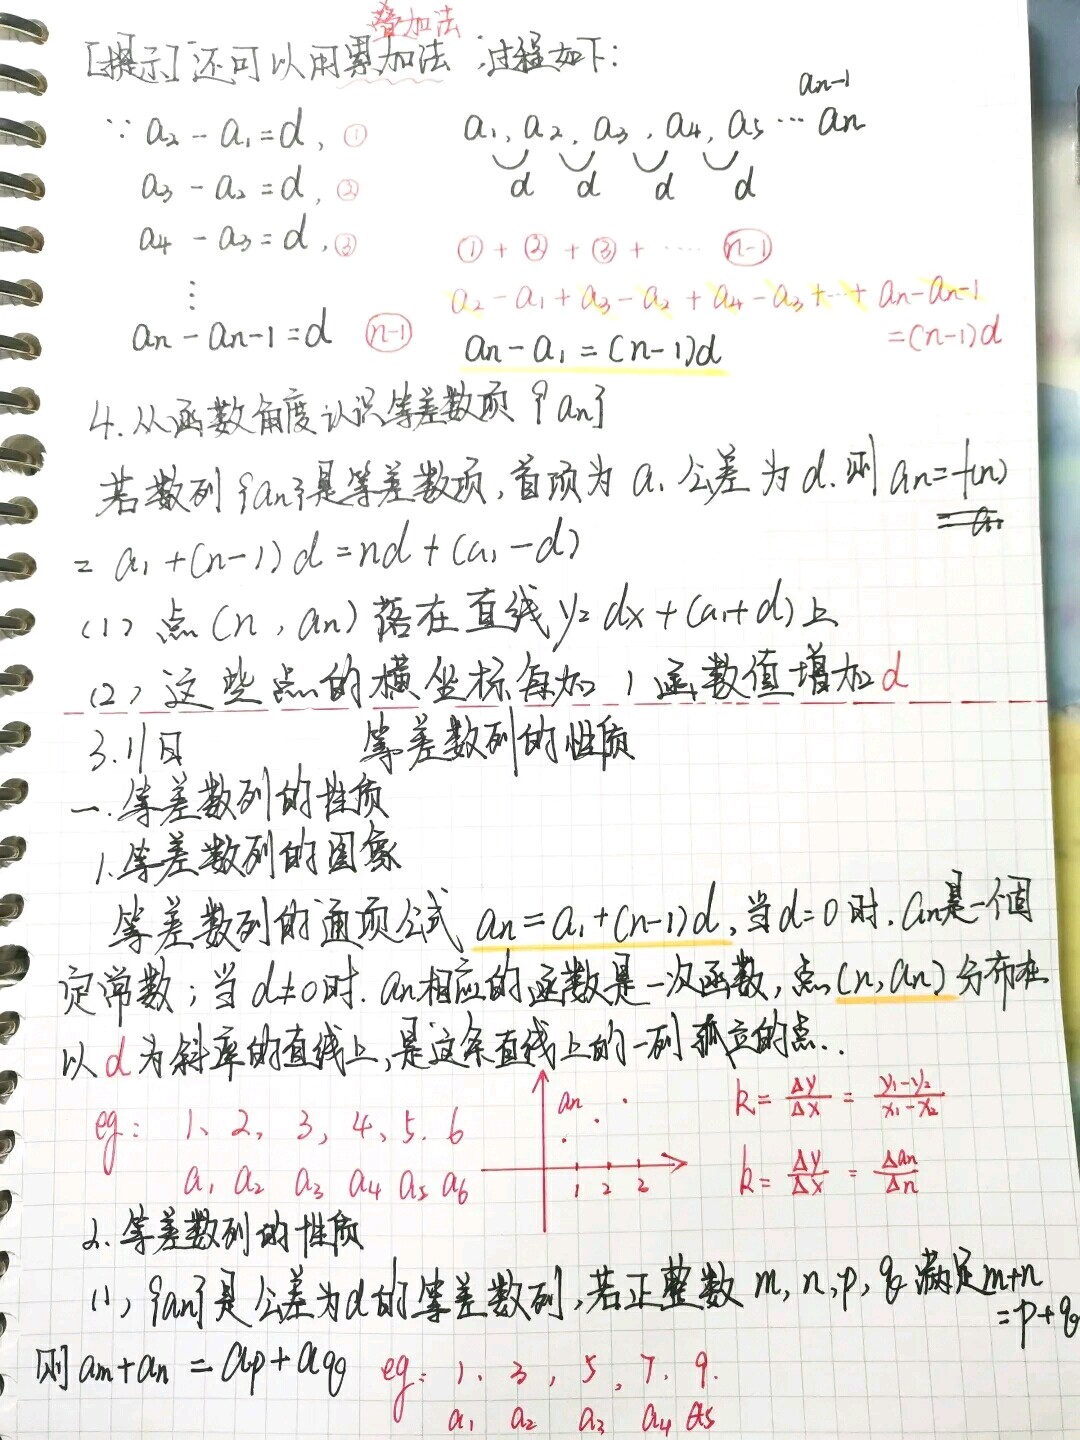 叠加法
[提示]还可以用累加法,过程如下:
∵ a₂-a₁=d, ①
a₃-a₂=d, ②
a₄-a₃=d, ③
⋮
an-an-1=d (n-1)
an-1
a₁, a₂, a₃, a₄, a₅ ··· an
d d d d
①+②+③+······(n-1)
a₂-a₁+a₃-a₂+a₄-a₃+···+an-an-1
=(n-1)d
an-a₁=(n-1)d
4.从函数角度认识等差数项{an}
若数列{an}是等差数项,首项为a₁公差为d.则an=f(n)
=a₁+(n-1)d=nd+(a₁-d)
(1)点(n,an)落在直线y=dx+(a₁+d)上
(2)这些点的横坐标每加1函数值增加d
3.11日 等差数列的性质
一.等差数列的性质
1.等差数列的图象
等差数列的通项公式an=a₁+(n-1)d,当d=0时.an是一个固
定常数;当d≠0时.an相应的函数是一次函数,点(n,an)分布在
以d为斜率的直线上,是这条直线上的一列孤立的点..
eg: 1、2, 3, 4, 5. 6
a₁ a₂ a₃ a₄ a₅ a₆
an
1 2 3
k=Δy/Δx=y₁-y₂/x₁-x₂
k=Δy/Δx=Δan/Δn
2.等差数列的性质
(1),{an}是公差为d的等差数列,若正整数m,n,p,q满足m+n
=p+q
则am+an=ap+aq eg: 1. 3, 5, 7. 9.
a₁ a₂ a₃ a₄ a₅